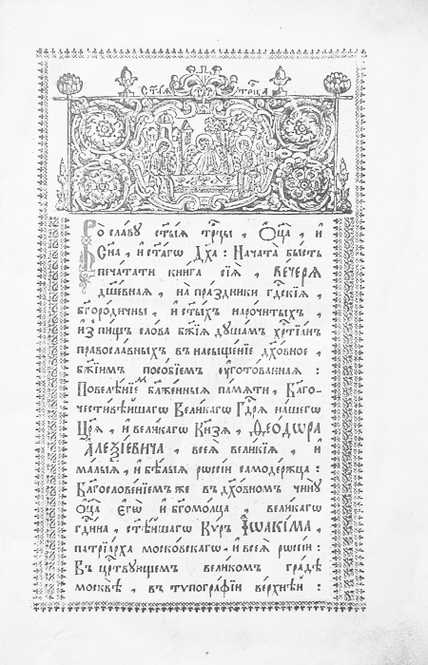 Ст҃а́ѧ трⷪ҇ца
Во сла́вꙋ ст҃ы́ѧ трⷪ҇цы , Ѻ҆ц҃а̀ , и҆
Сн҃а , и҆ ст҃а́гѡ Дх҃а : Нача́та бы́сть
печа́тати кни́га сїѧ̀ , ве́черѧ
дш҃е́внаѧ , на пра́здники гдⷭ҇кїѧ ,
бг҃оро́дичны , и҆ ст҃ы́хъ наро́читыхъ ,
и҆з̾ пи́щъ сло́ва бж҃їѧ дꙋша́мъ хрⷭ҇тїа́нъ
правосла́вныхъ в̾ насыще́нїе дꙋ́ховное ,
бж҃їимъ посо́бїемъ ᲂу҆гото́ваннаѧ :
Повелѣ́нїемъ бл҃же́нныѧ па́мѧти , Бл҃го-
чести́вѣйшагѡ Вели́кагѡ Гдⷭ҇рѧ на́шегѡ
Цр҃ѧ̀ , и҆ вели́кагѡ Кн҃зѧ , Ѳео́дѡра
А҆леѯі́евича , всеѧ̀ вели́кїѧ , и҆
ма́лыѧ , и҆ бѣ́лыѧ рѡссі́и самоде́ржца :
Бл҃гослове́нїемъ же в̾ дх҃о́вномъ чи́нꙋ
Ѻ҆ц҃а̀ Е҆гѡ̀ и҆ бг҃омо́лца , вели́кагѡ
гдⷭ҇ина , ст҃ѣ́йшагѡ Кѵ́ръ І҆ѡаки́ма ,
патрїа́рха моско́вскагѡ , и҆ всеѧ̀ рѡссі́и :
Въ црⷭ҇твꙋющемъ вели́комъ гра́дѣ
москвѣ̀ , въ тѵпогра́фїи ве́рхнѣй :